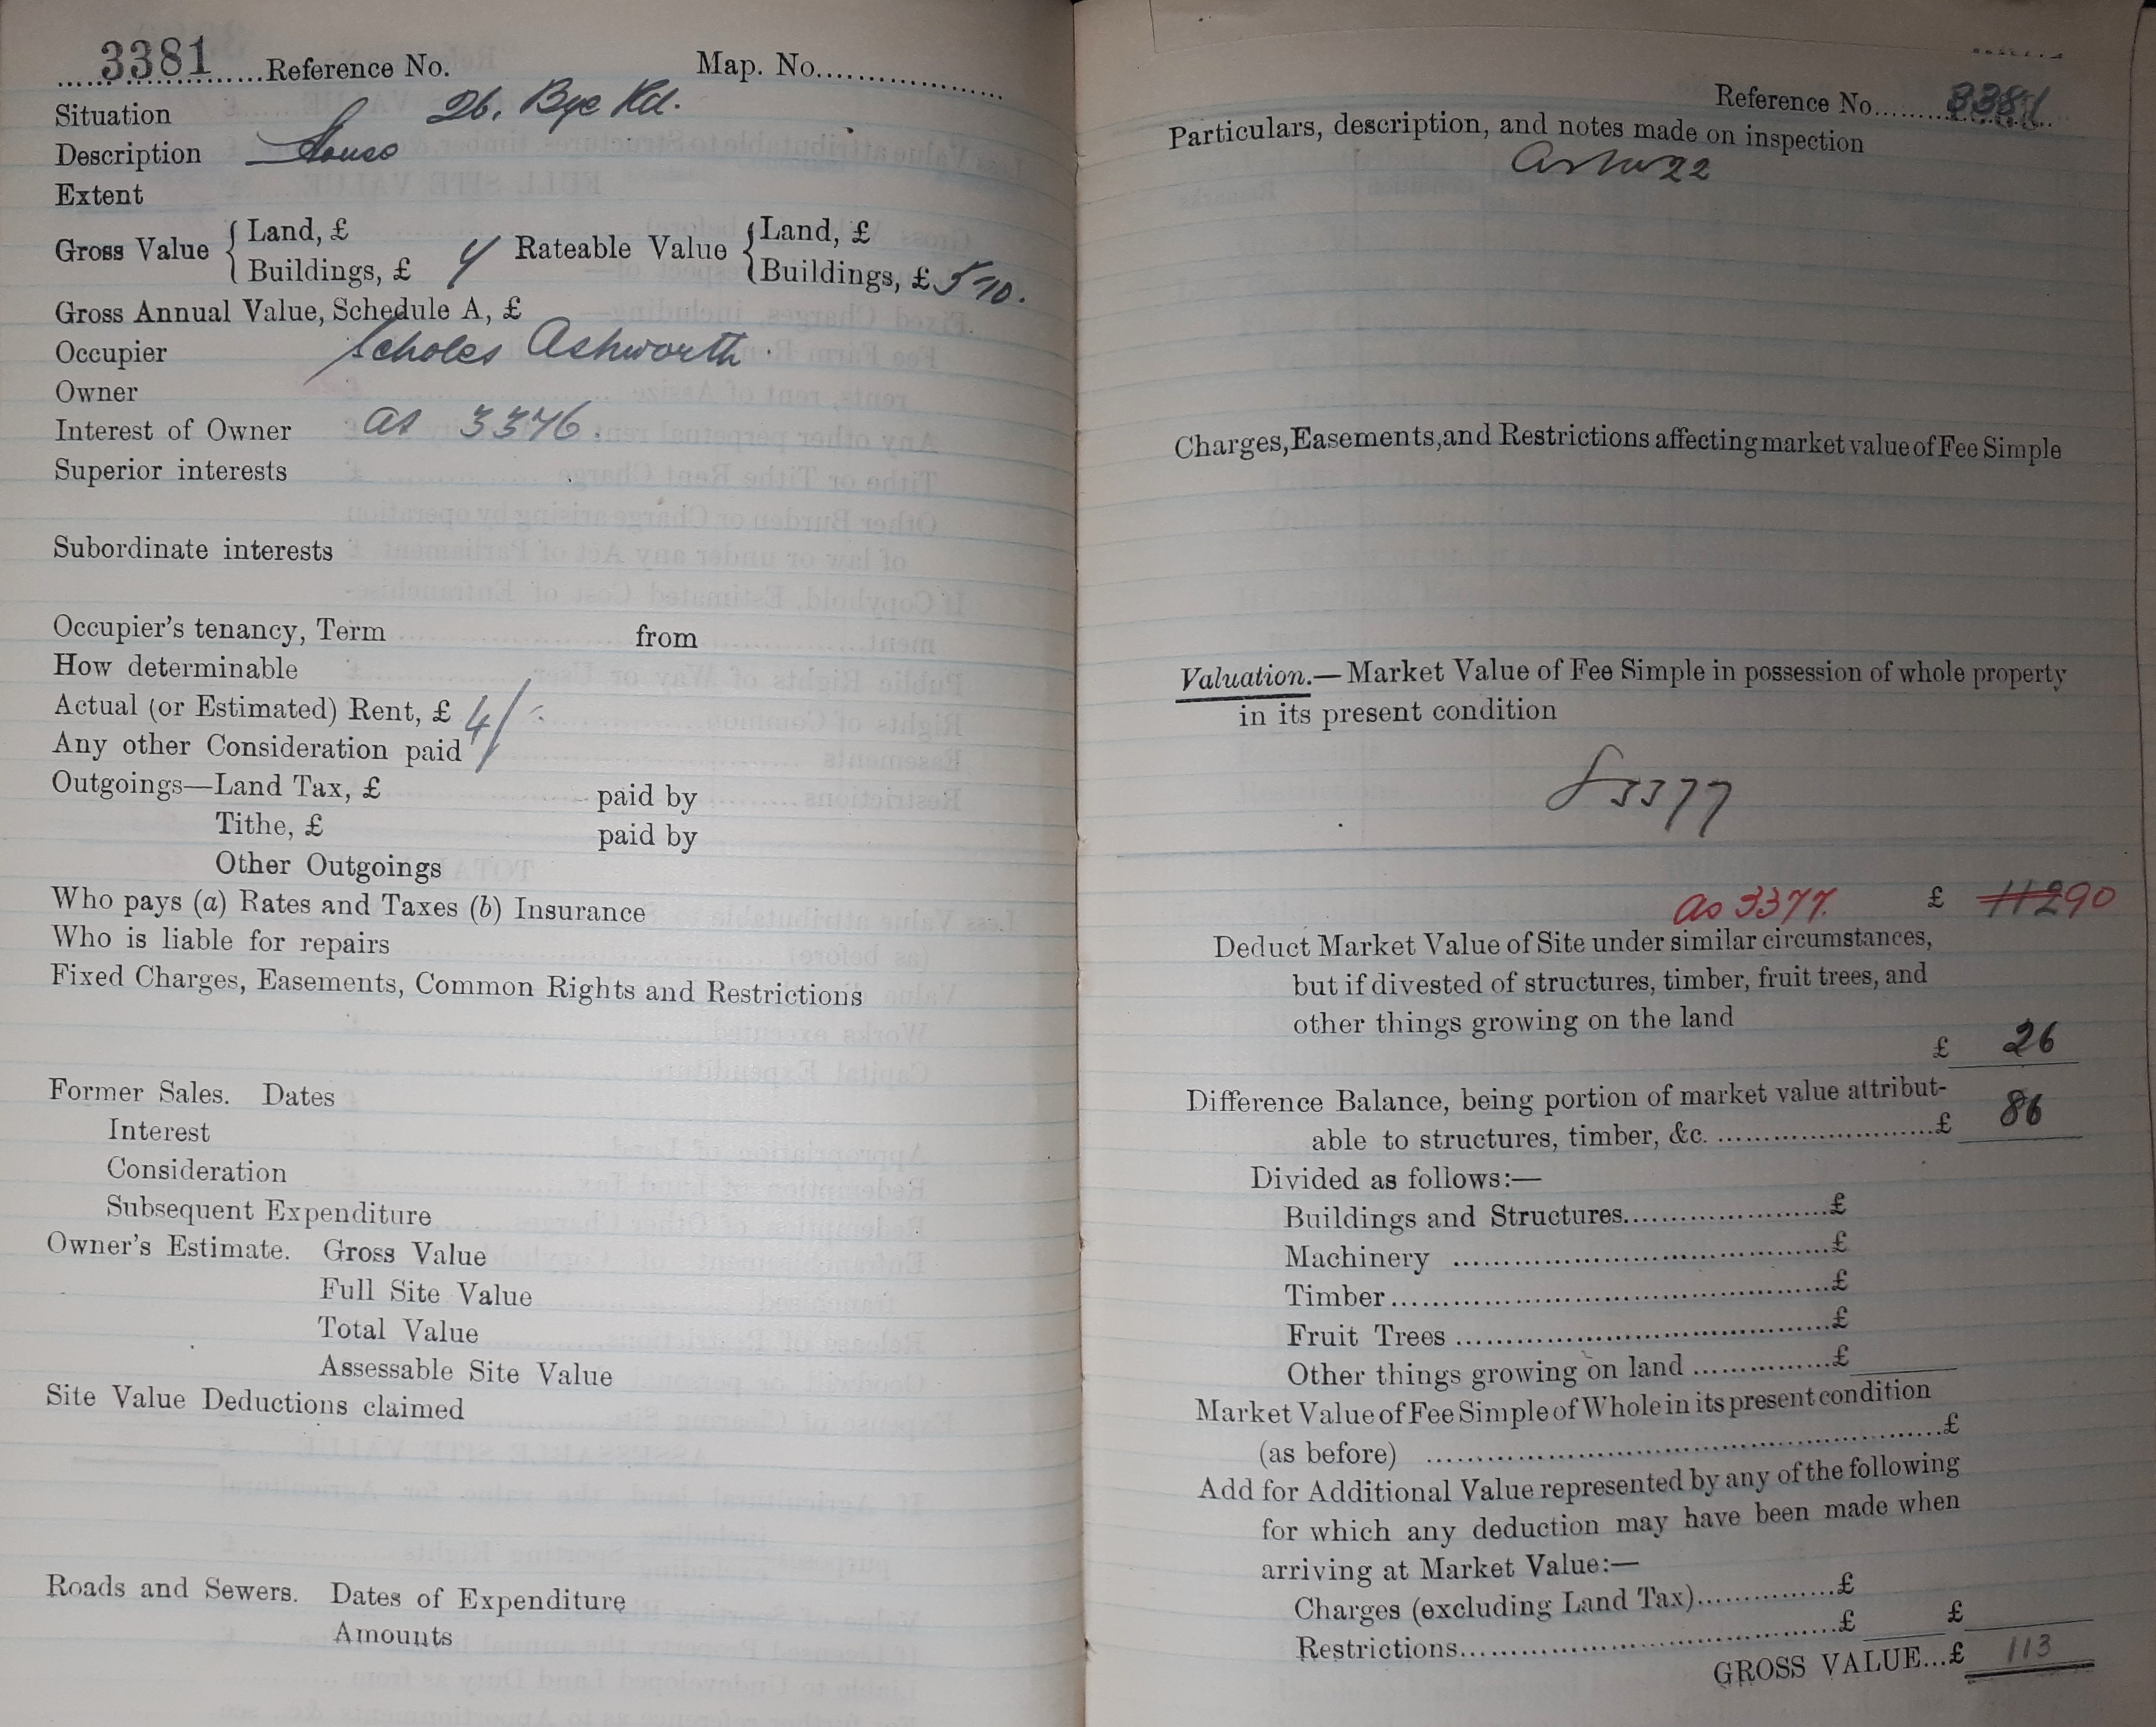 3381 Reference No. Map. No.
Situation 26, Bye Rd.
Description House
Extent
Gross Value { Land, £ Rateable Value { Land, £
Buildings, £ Buildings, £ 5-10.
Gross Annual Value, Schedule A, £
Occupier Scholes Ashworth
Owner
Interest of Owner as 3376.
Superior interests
Subordinate interests
Occupier's tenancy, Term from
How determinable
Actual (or Estimated) Rent, £ 4/-
Any other Consideration paid
Outgoings—Land Tax, £ paid by
Tithe, £ paid by
Other Outgoings
Who pays (a) Rates and Taxes (b) Insurance
Who is liable for repairs
Fixed Charges, Easements, Common Rights and Restrictions
Former Sales. Dates
Interest
Consideration
Subsequent Expenditure
Owner's Estimate. Gross Value
Full Site Value
Total Value
Assessable Site Value
Site Value Deductions claimed
Roads and Sewers. Dates of Expenditure
Amounts
Reference No. 3381
Particulars, description, and notes made on inspection
Charges, Easements, and Restrictions affecting market value of Fee Simple
Valuation.—Market Value of Fee Simple in possession of whole property
in its present condition
3377
as 3377. £ 112 90
Deduct Market Value of Site under similar circumstances,
but if divested of structures, timber, fruit trees, and
other things growing on the land
£ 26
Difference Balance, being portion of market value attribut-
able to structures, timber, &c. £ 86
Divided as follows:—
Buildings and Structures £
Machinery £
Timber £
Fruit Trees £
Other things growing on land £
Market Value of Fee Simple of Whole in its present condition
(as before) £
Add for Additional Value represented by any of the following
for which any deduction may have been made when
arriving at Market Value:—
Charges (excluding Land Tax) £
Restrictions £ £
GROSS VALUE...£ 113